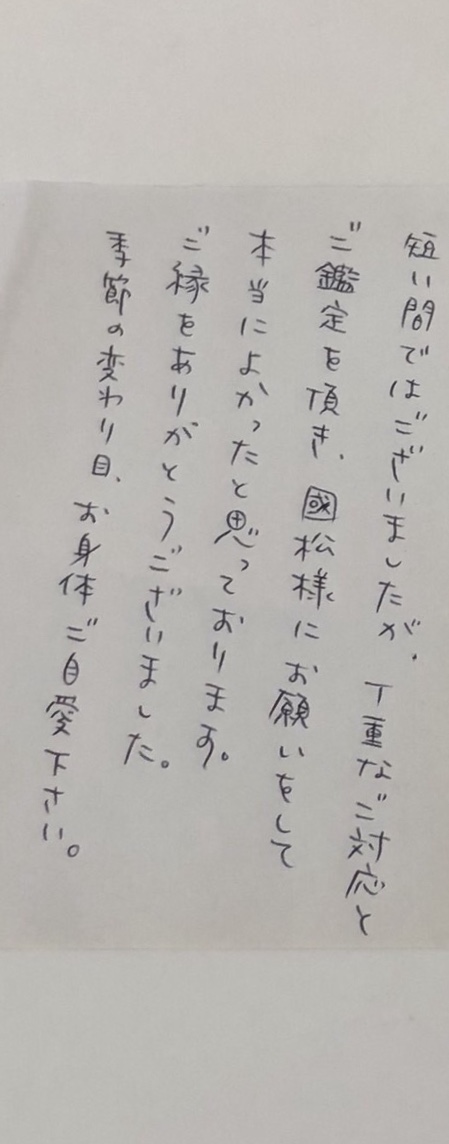 短い間ではございましたが、丁重なご対応と
ご鑑定を頂き、國松様にお願いをして
本当によかったと思っております。
ご縁をありがとうございました。
季節の変わり目、お身体ご自愛下さい。